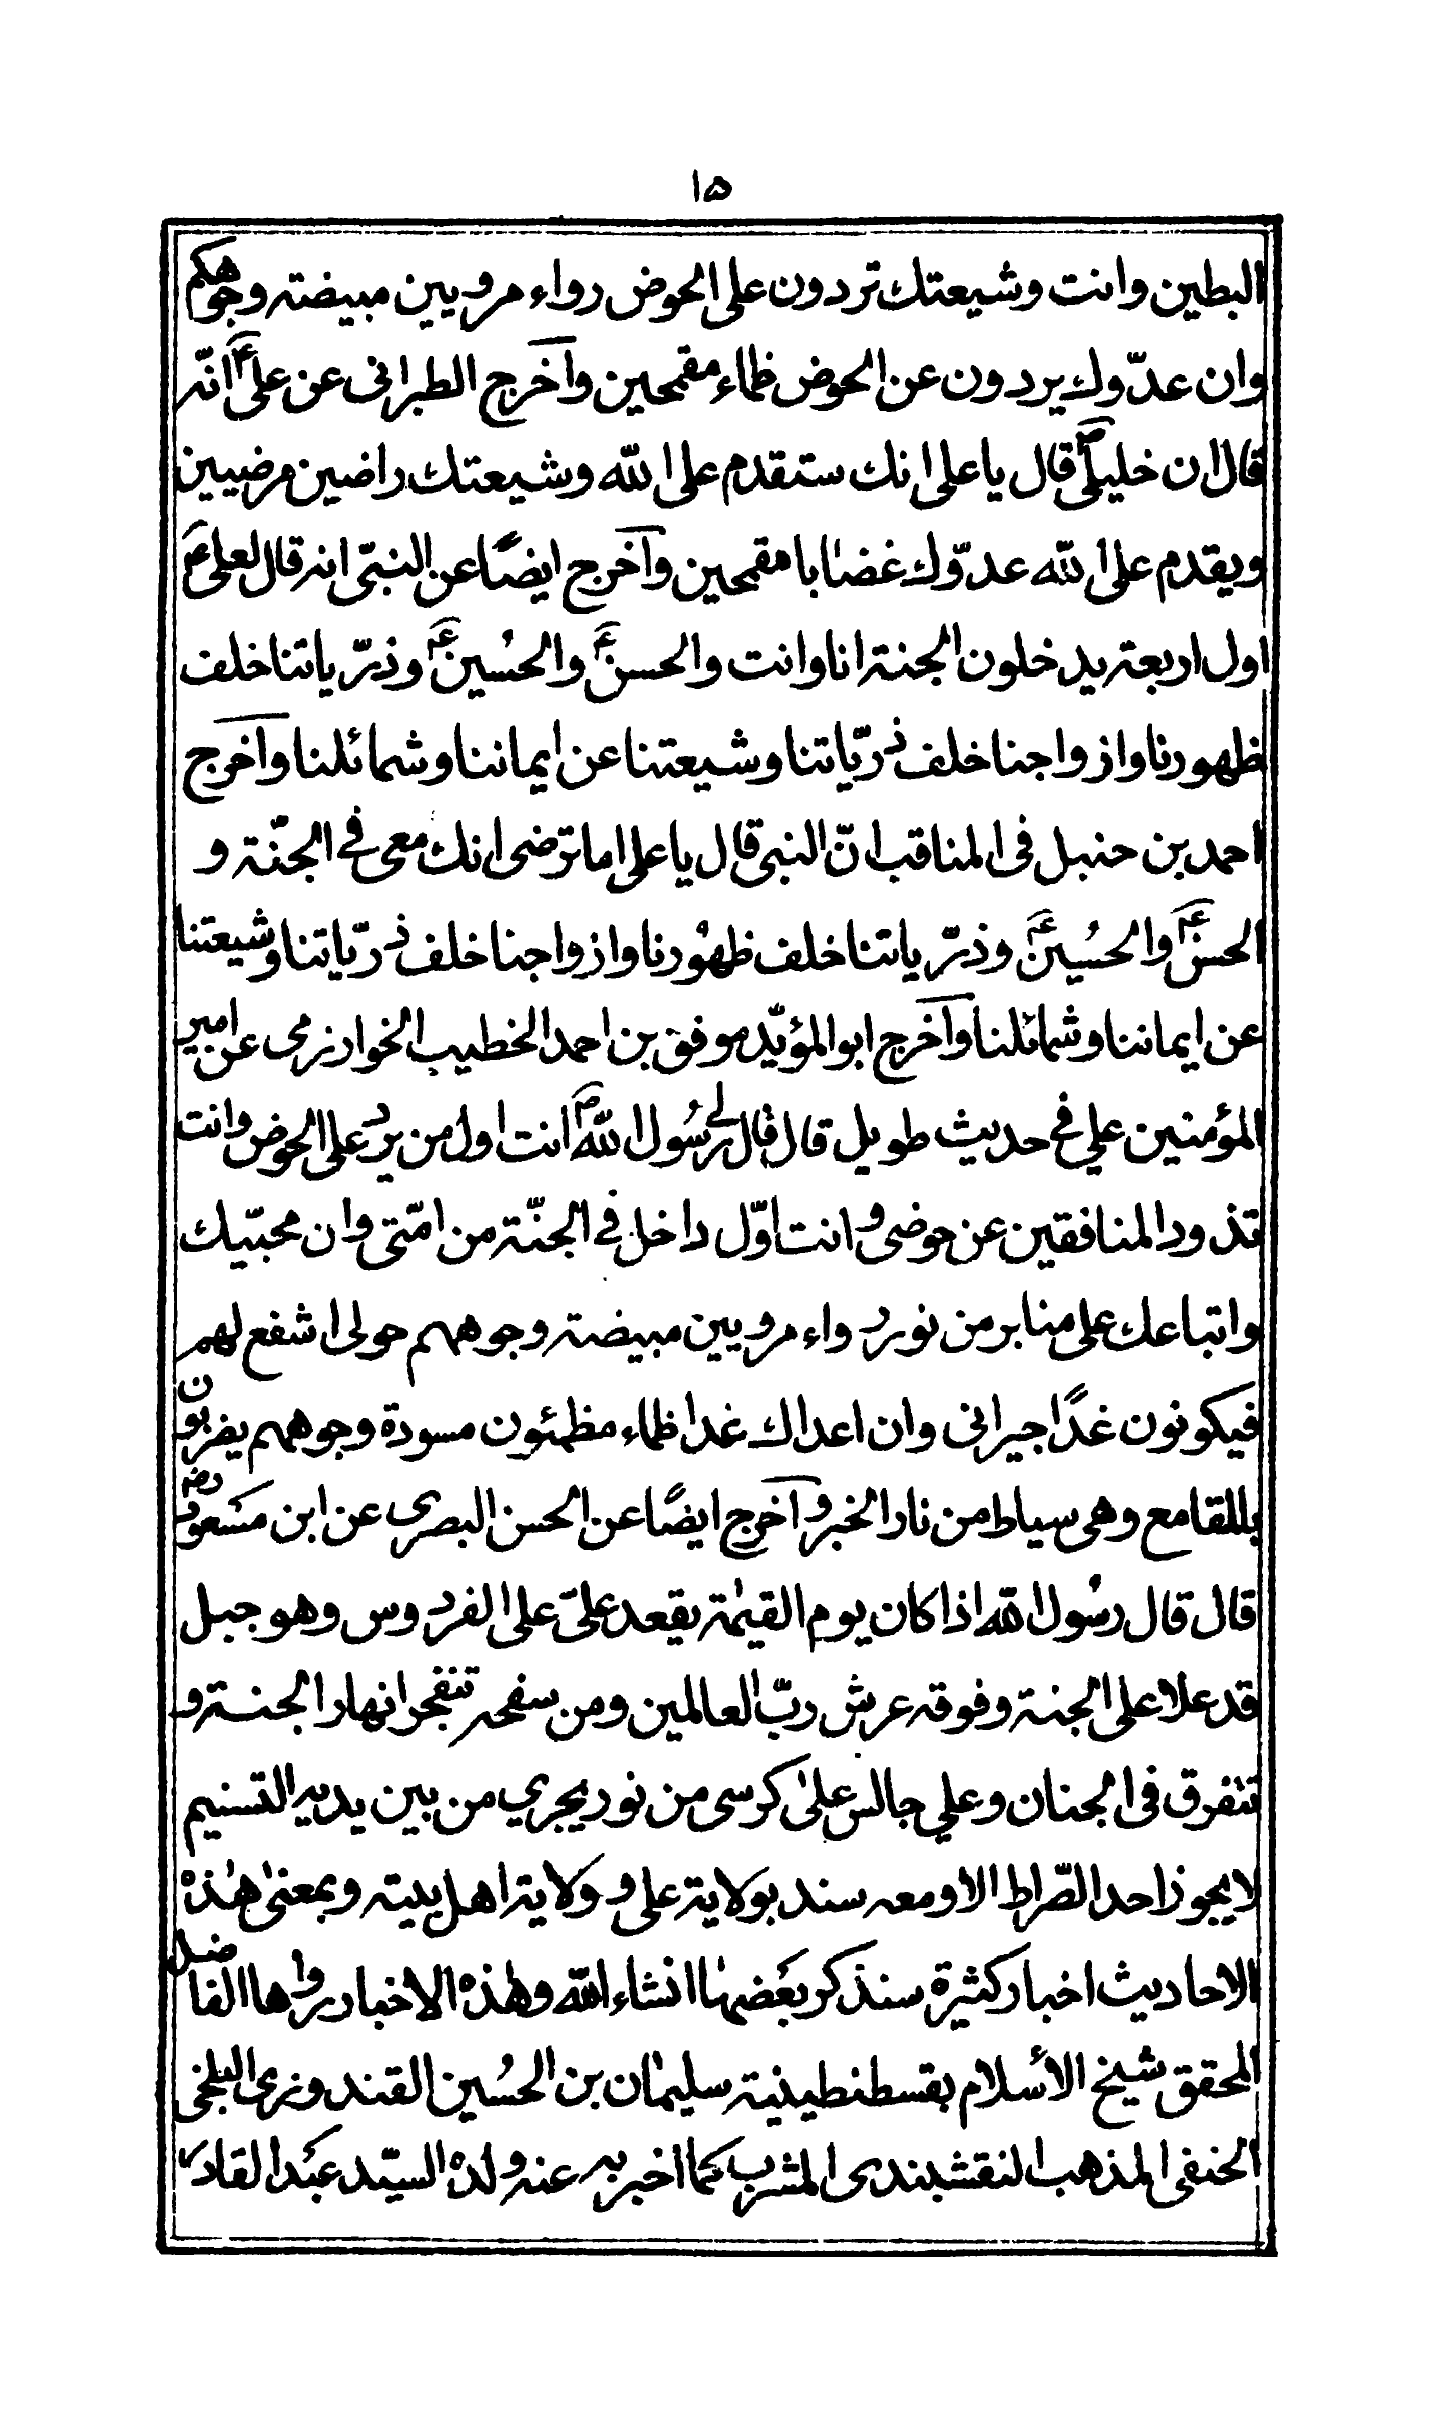 ١٥
البطين وانت وشيعتك تردون على الحوض رواء مرويين مبيضة وجوهكم
وان عدّوك يردون عن الحوض ظماء مقمحين وآخرج الطبراني عن علىؑ انّه
قال ان خليلىؐ قال يا على انك ستقدم على الله وشيعتك راضين مرضيين
ويقدم على الله عدّوك غضابا مقمحين وآخرج ايضًا عن النبىّ انه قال لعلىؑ
اول اربعة يدخلون الجنة انا وانت والحسنؑ والحُسينؑ وذرّياتنا خلف
ظهورنا وازواجنا خلف ذرّياتنا وشيعتنا عن ايماننا وشمائلنا وآخرج
احمد بن حنبل فى المناقب انّ النبى قال يا على اما ترضى انك معى فے الجنّة و
الحسنؑ والحُسينؑ وذرّياتنا خلف ظهُورنا وازواجنا خلف ذرّياتنا وشيعتنا
عن ايماننا وشمائلنا وآخرج ابو المؤيّد موفق بن احمد الخطيب الخوارزمي عن امير
المؤمنين علي فے حديث طويل قال قال لے رسُول اللهؐ انت اول من يرد على الحوض وانت
تذود المنافقين عن حوضى وانت اوّل داخل فے الجنّة من امّتى وان محبيّك
واتباعك على منابر من نور رواء مرويين مبيضة وجوههم حولى اشفع لهم
فيكونون غدًا جيرانى وان اعداك غدا ظماء مظمئون مسودة وجوههم يضربون
بالمقامع وهى سياط من نار الخبر وآخرج ايضًا عن الحسن البصري عن ابن مسعودؓ
قال قال رسُول الله اذا كان يوم القيٰمة يقعد علىّ على الفردوس وهو جبل
قد علا على الجنة وفوقه عرش ربّ العالمين ومن سفحه تنفجر انهار الجنة و
تتفرق فى الجنان وعلي جالس علىٰ كرسى من نور يجري من بين يديه التسنيم
لا يجوز احد الصّراط الا ومعه سند بولاية على و ولاية اهل بيته وبمعنىٰ هٰذه
الاحاديث اخبار كثيرة سنذكر بعضها انشاء الله وهٰذه الاخبار رواها الفاضل
المحقق شيخ الأسلام بقسطنطينية سليمٰان بن الحُسين القندوزى البلخى
الحنفى المذهب النقشبندى المشرب كما اخبر به عنه ولده السيّد عبد القادر